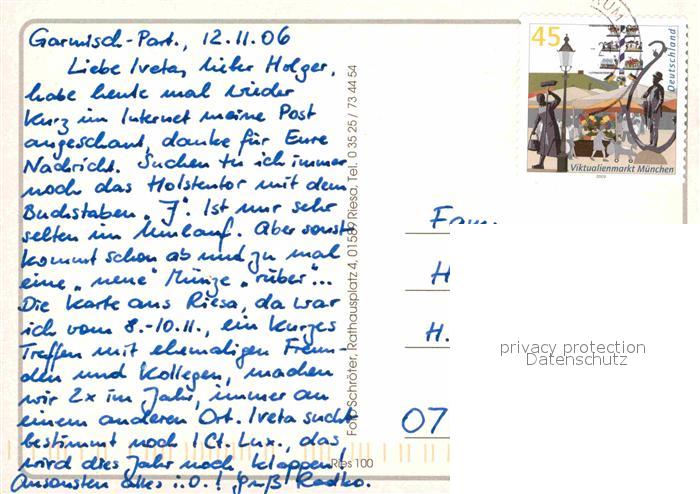 Garmisch-Part., 12.11.06
Liebe Iveta, lieber Holger,
habe heute mal wieder
kurz im Internet meine Post
angeschaut, danke für Eure
Nachricht. Suchen tu ich immer
noch das Holstentor mit dem
Buchstaben „J“. Ist nur sehr
selten im Umlauf. Aber sonst
kommt schon ab und zu mal
eine „neue“ Münze „rüber“...
Die Karte aus Riesa, da war
ich vom 8.-10.11., ein kurzes
Treffen mit ehemaligen Freun-
den und Kollegen, machen
wir 2x im Jahr, immer an
einem anderen Ort. Iveta sucht
bestimmt noch 1 Ct. Lux., das
wird dies Jahr noch klappen!
Ansonsten alles i.O.! Gruß Radko.
Foto Schröter, Rathausplatz 4, 01589 Riesa, Tel. 0 35 25 / 73 44 54
Ries 100
45
Deutschland
Viktualienmarkt München
2003
Fam.
H
H.
07
privacy protection
Datenschutz